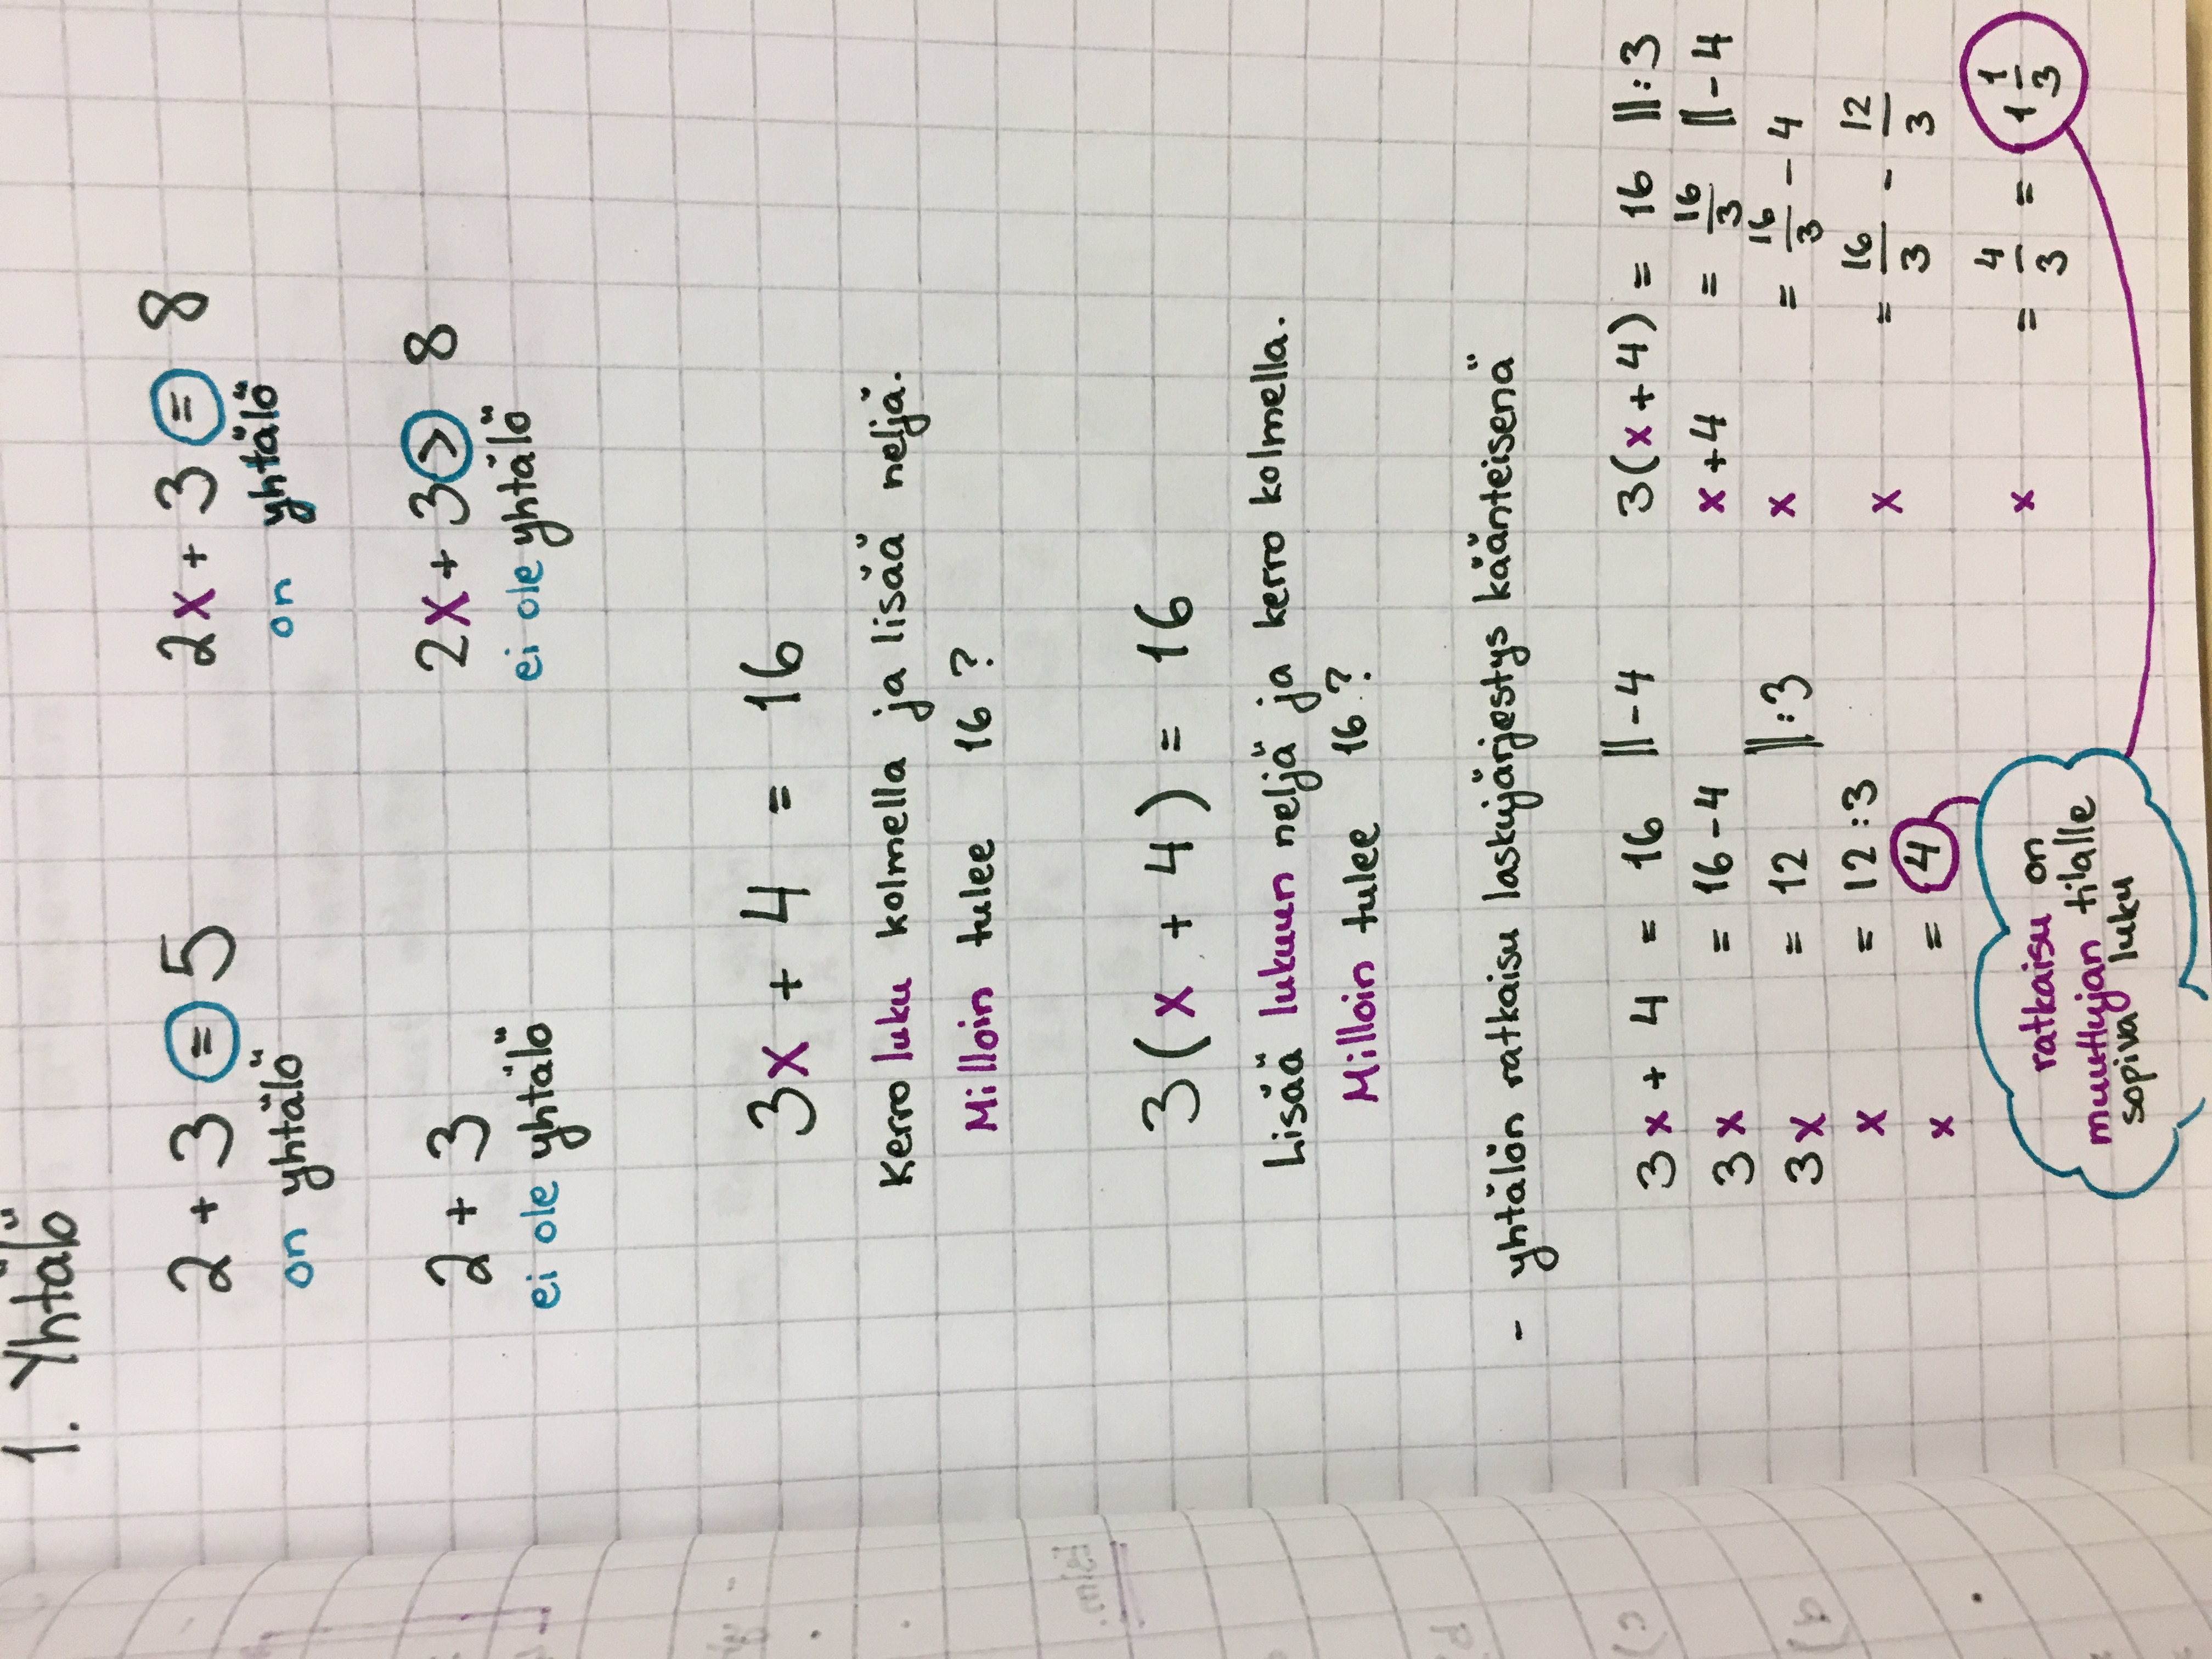 1. Yhtälö
2 + 3 = 5 2x + 3 = 8
on yhtälö on yhtälö
2 + 3 2x + 3 > 8
ei ole yhtälö ei ole yhtälö
3x + 4 = 16
Kerro luku kolmella ja lisää neljä.
Milloin tulee 16?
3(x + 4) = 16
Lisää lukuun neljä ja kerro kolmella.
Milloin tulee 16?
- yhtälön ratkaisu laskujärjestys käänteisenä
3x + 4 = 16 ||-4 3(x+4) = 16 ||:3
3x = 16-4 x+4 = 16/3 ||-4
3x = 12 ||:3 x = 16/3 - 4
x = 12:3 x = 16/3 - 12/3
x = 4 x = 4/3 = 1 1/3
ratkaisu on
muuttujan tilalle
sopiva luku